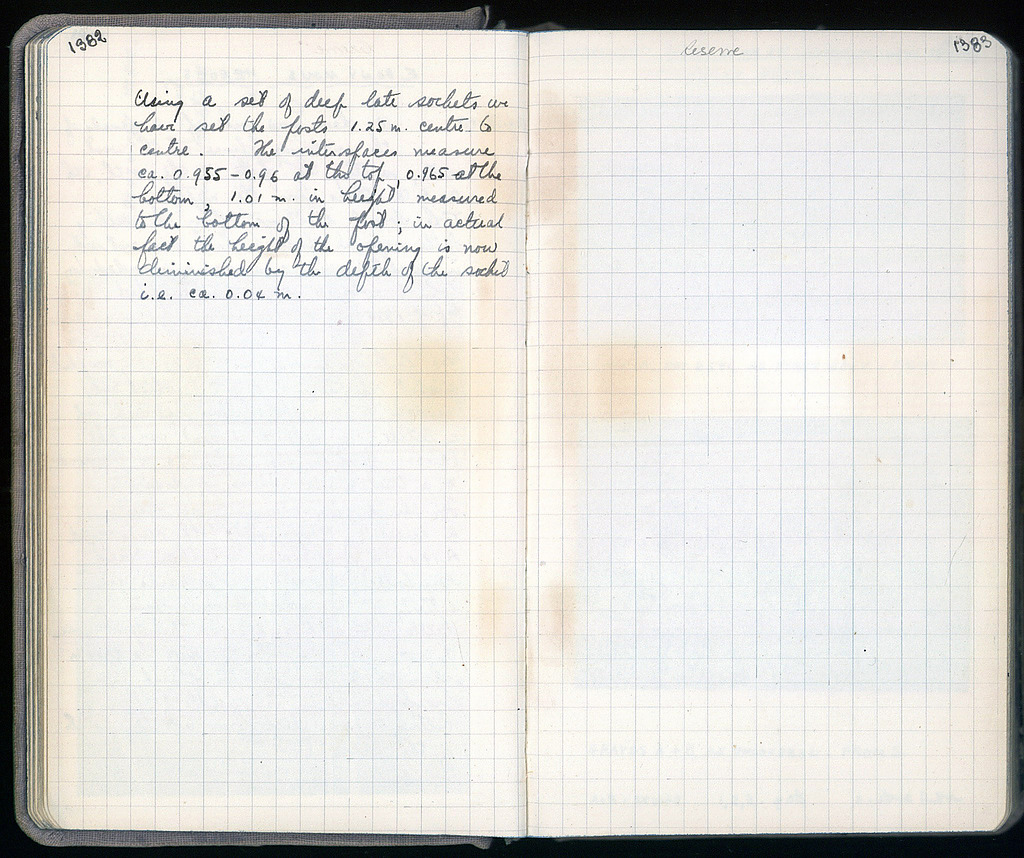 1382
Using a set of deep late sockets we
have set the posts 1.25 m. centre to
centre. The interspaces measure
ca. 0.955-0.96 at the top, 0.965 at the
bottom, 1.01 m. in height measured
to the bottom of the post; in actual
fact the height of the opening is now
diminished by the depth of the socket
i.e. ca. 0.04 m.
Reserve
1383